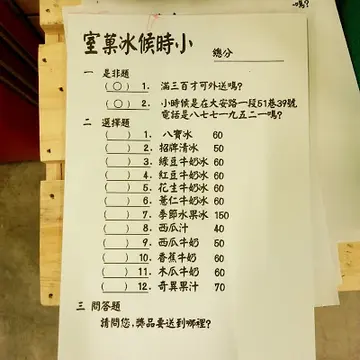 嗎?
小時候冰菓室
總分
一 是非題
(○) 1. 滿三百才可外送嗎?
(○) 2. 小時候是在大安路一段51巷39號
電話是八七七一九五二一嗎?
二 選擇題
( ) 1. 八寶冰 60
( ) 2. 招牌清冰 50
( ) 3. 綠豆牛奶冰 60
( ) 4. 紅豆牛奶冰 60
( ) 5. 花生牛奶冰 60
( ) 6. 薏仁牛奶冰 60
( ) 7. 季節水果冰 150
( ) 8. 西瓜汁 40
( ) 9. 西瓜牛奶 50
( ) 10. 香蕉牛奶 60
( ) 11. 木瓜牛奶 60
( ) 12. 奇異果汁 70
三 問答題
請問您,獎品要送到哪裡?